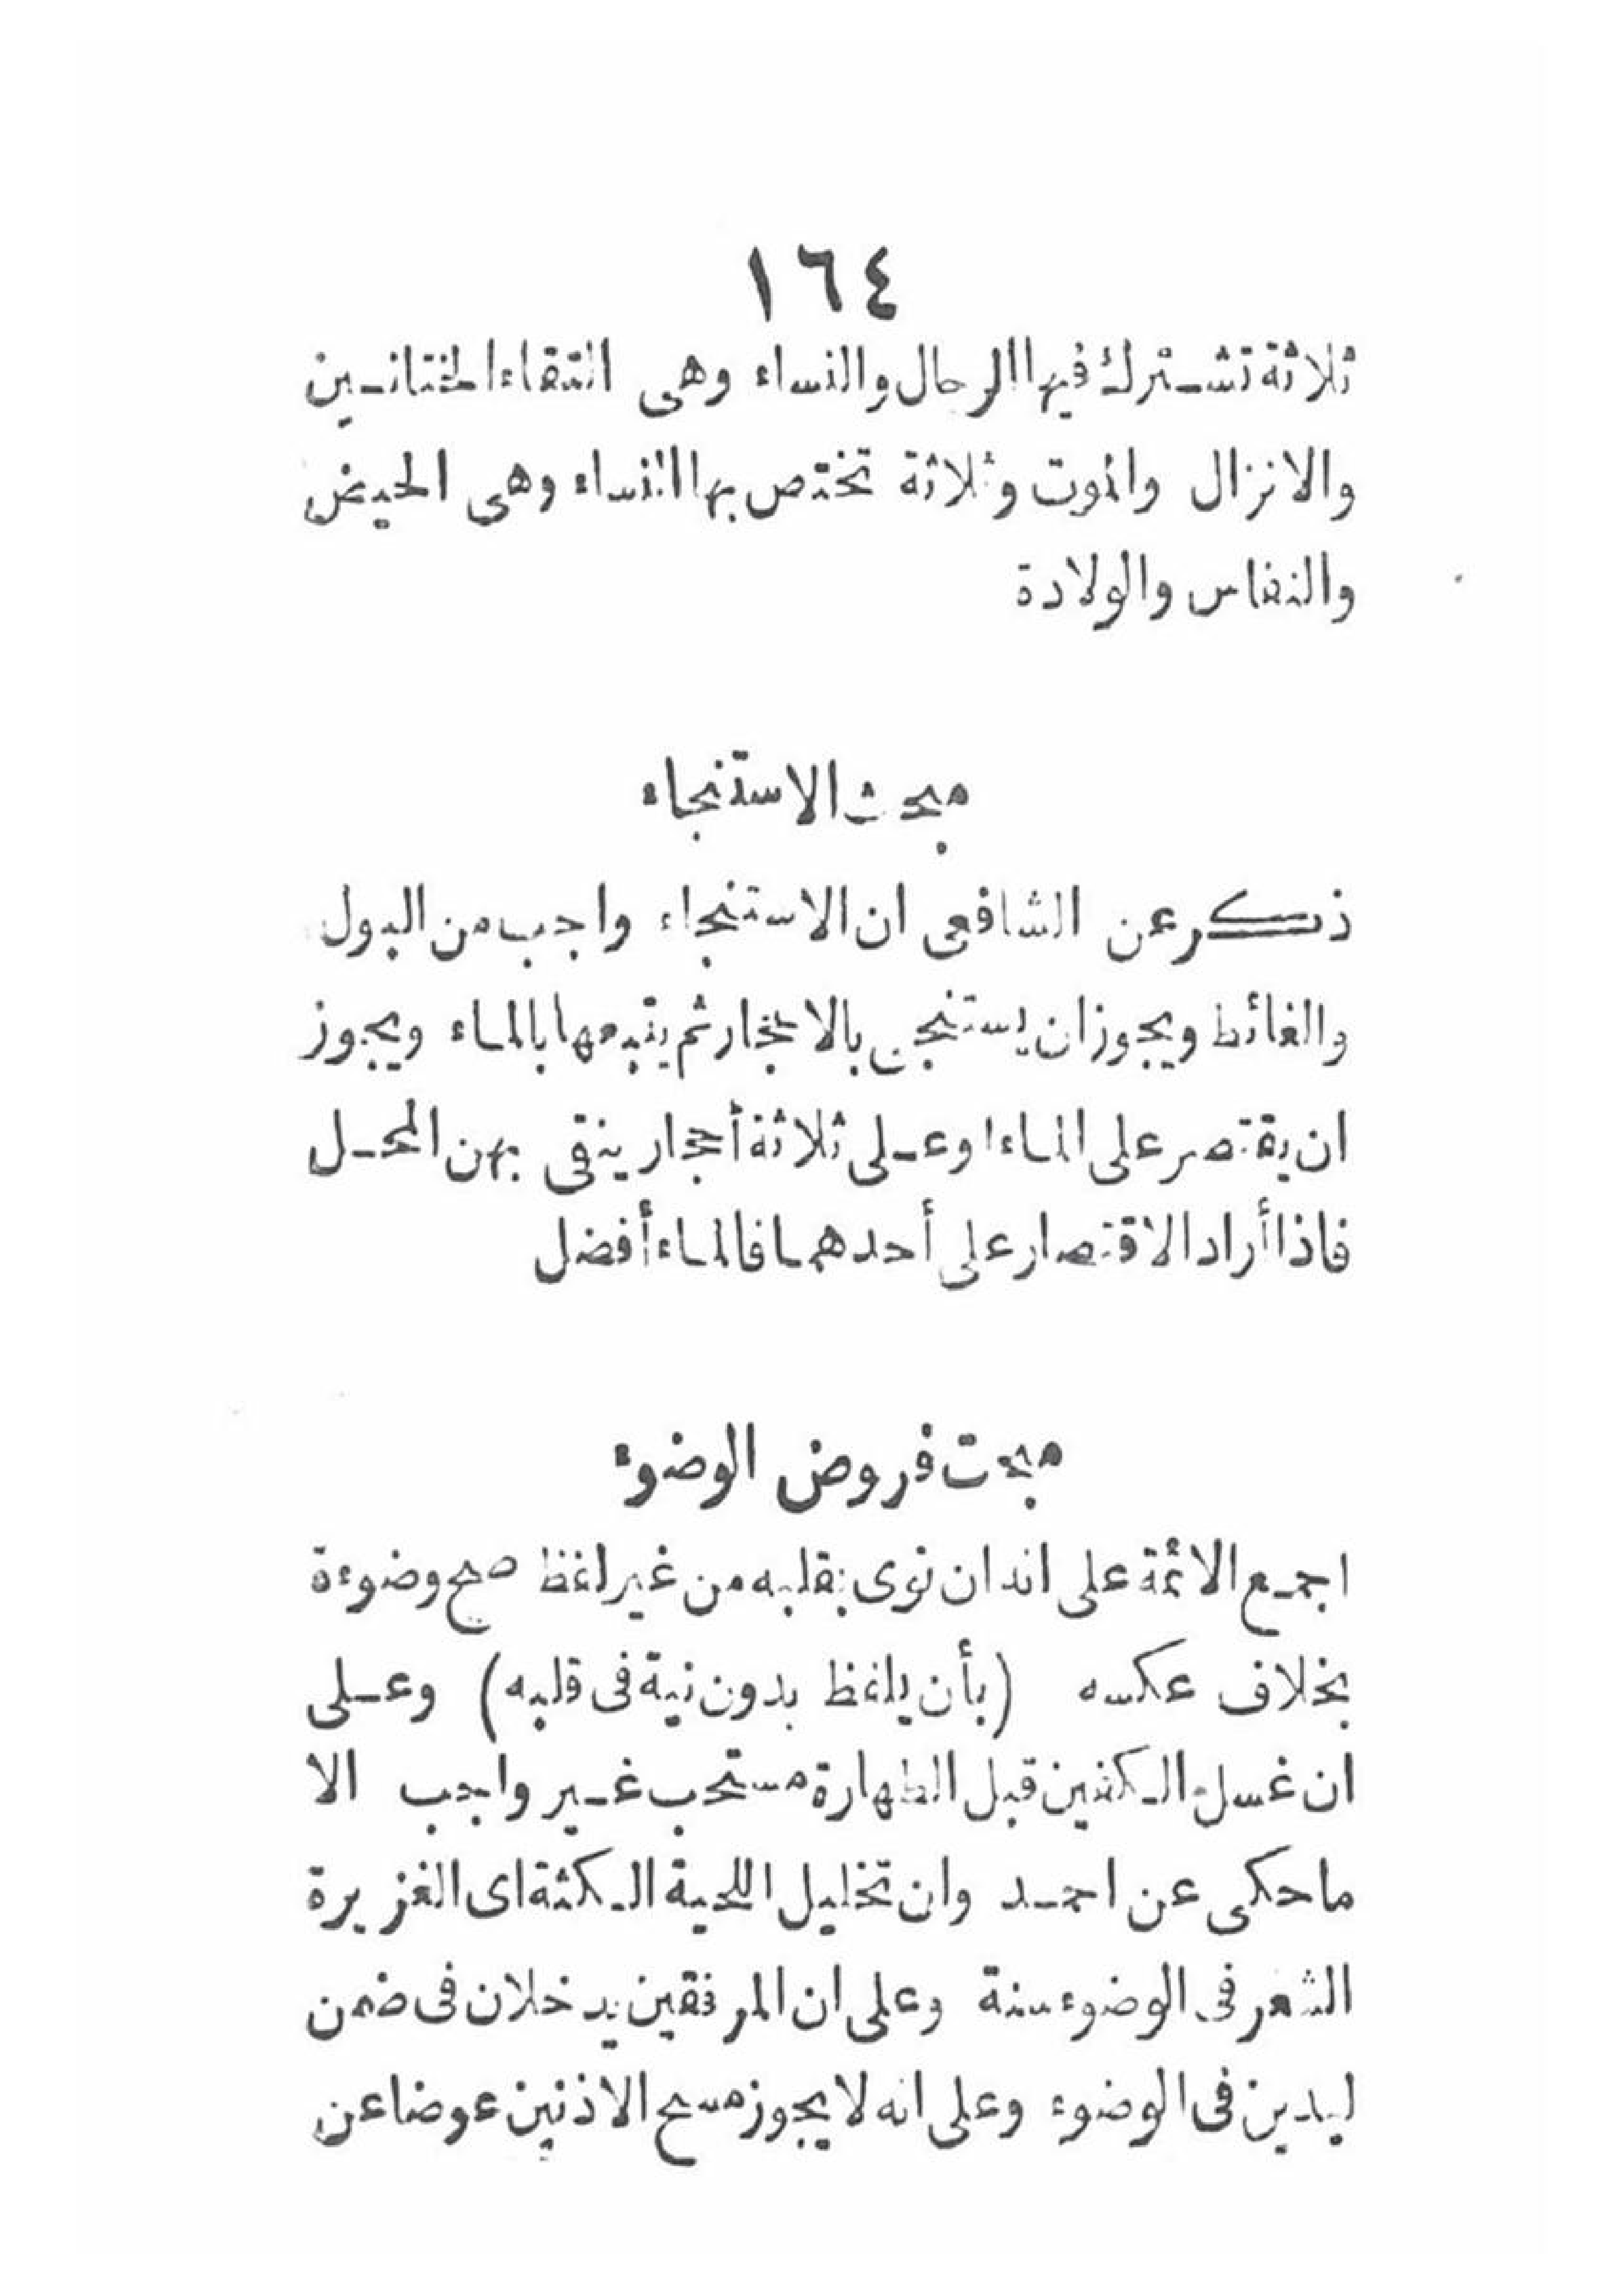 ١٦٤
ثلاثة تشترك فيها الرجال والنساء وهى التقاء الختانين
والانزال والموت وثلاثة تختص بها النساء وهى الحيض
والنفاس والولادة
مبحث الاستنجاء
ذكر عن الشافعى ان الاستنجاء واجب من البول
والغائط ويجوز ان يستنجى بالاحجار ثم يتبعها بالماء ويجوز
ان يقتصر على الماء او على ثلاثة أحجار ينقى بهن المحل
فاذا أراد الاقتصار على أحدهما فالماء أفضل
مبحت فروض الوضوء
اجمع الائمة على انه ان نوى بقلبه من غير لفظ صح وضوءة
بخلاف عكسه (بأن يلفظ بدون نية فى قلبه) وعلى
ان غسل الكفين قبل الطهارة مستحب غير واجب الا
ما حكى عن احمد وان تخليل اللحية الكثة اى الغزيرة
الشعر فى الوضوء سنة وعلى ان المرفقين يدخلان فى ضمن
ليدين فى الوضوء وعلى انه لا يجوز مسح الاذنين عوضا عن